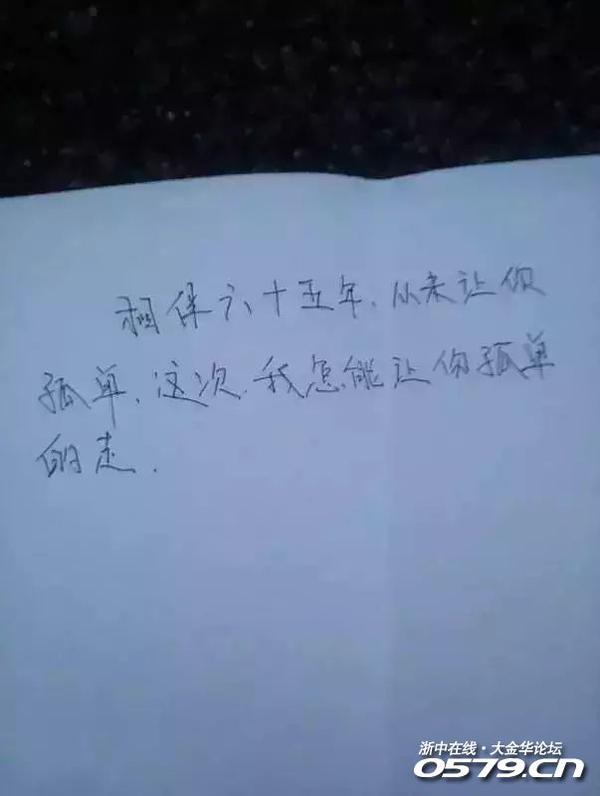 相伴六十五年.从未让你
孤单.这次.我怎能让你孤单
的走.
浙中在线·大金华论坛
0579.CN